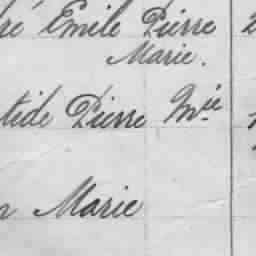 Emile Pierre
Marie.
tide Pierre Mie
Marie